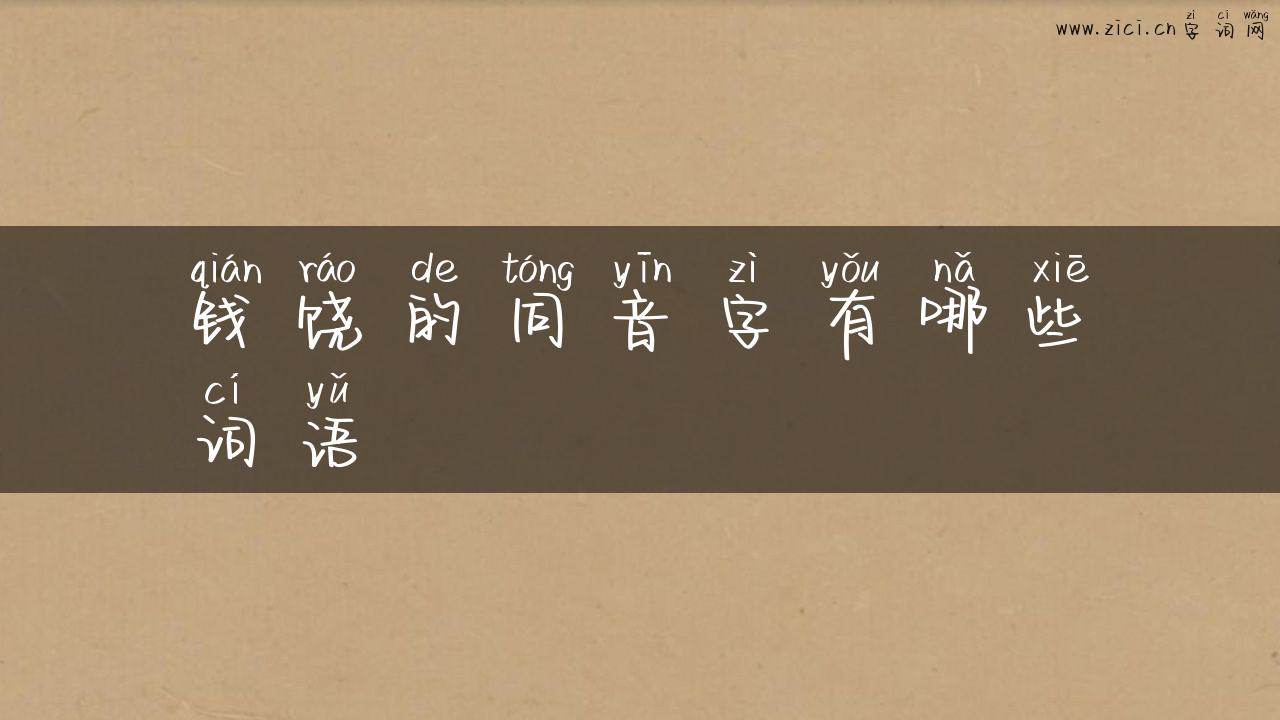 zì cí wǎng
www.zici.cn 字词网
qián ráo de tóng yīn zì yǒu nǎ xiē
钱饶的同音字有哪些
cí yǔ
词语